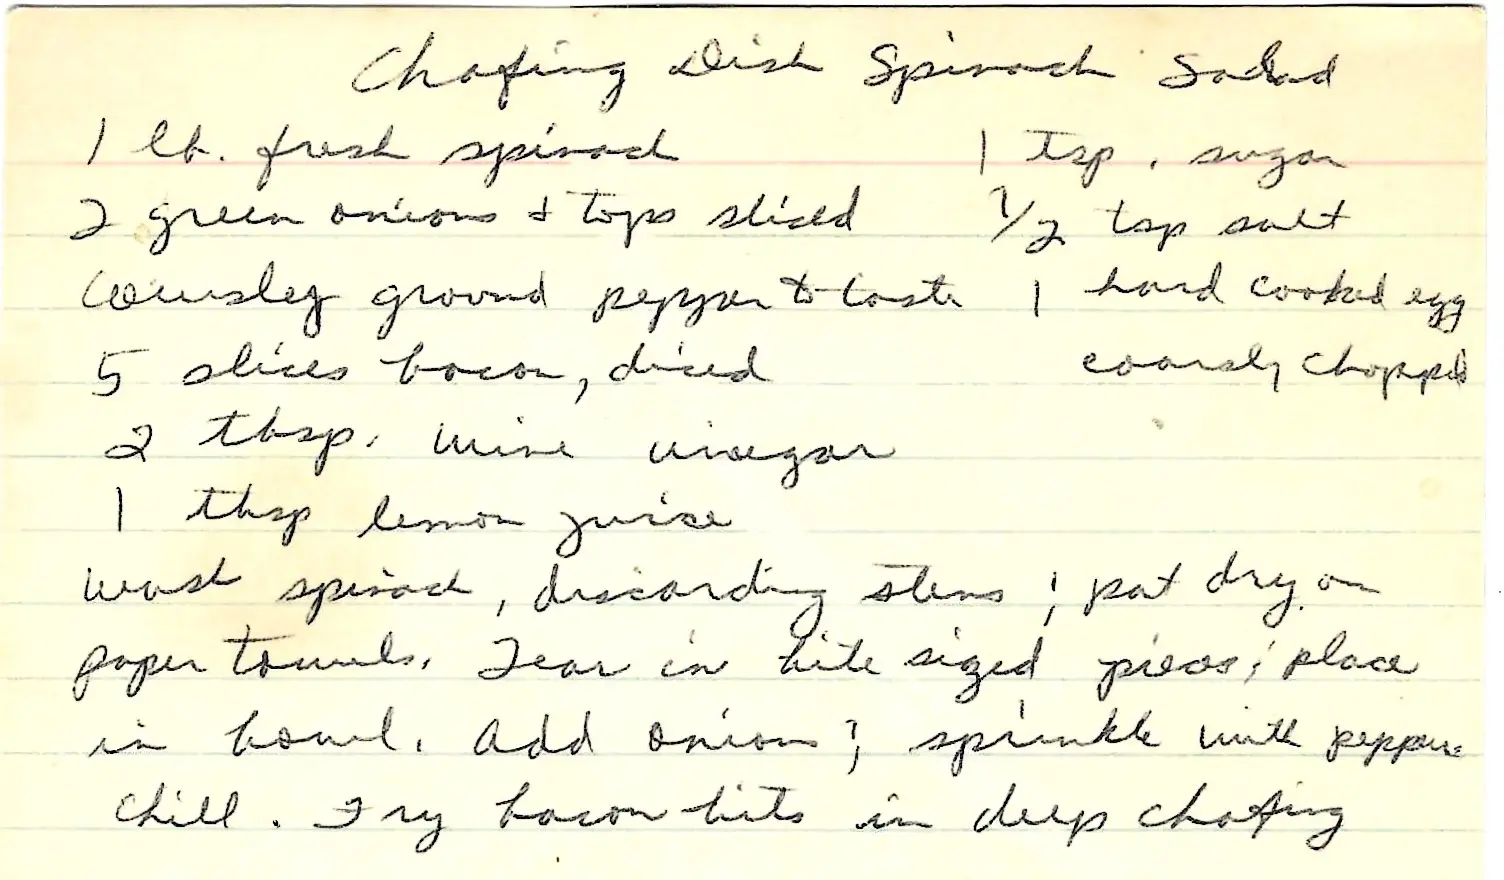 Chafing Dish Spinach Salad
1 lb. fresh spinach
2 green onions & tops sliced
ground pepper to taste
5 slices bacon, diced
2 tbsp. wine vinegar
1 tbsp lemon juice
1 tsp. sugar
1/2 tsp salt
1 hard cooked egg
coarsly chopped
Wash spinach, discarding stems; pat dry on
paper towels. Tear in bite sized pieces; place
in bowl. Add onions; sprinkle with pepper.
Chill. Fry bacon bits in deep chafing